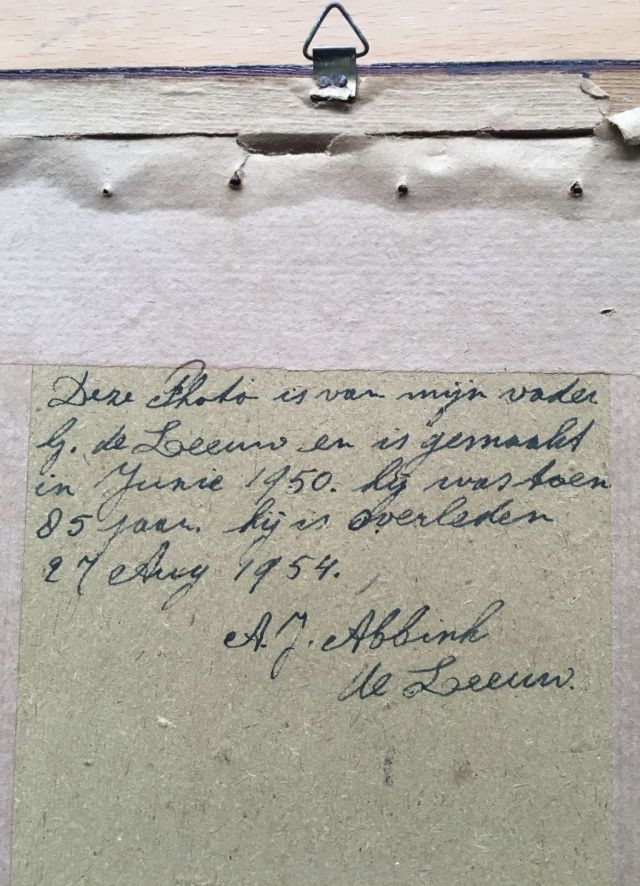 Deze Photo is van mijn vader
G. de Leeuw en is gemaakt
in Junie 1950. hij was toen
85 jaar. hij is overleden
27 Aug 1954.
A. J. Abbink
de Leeuw.